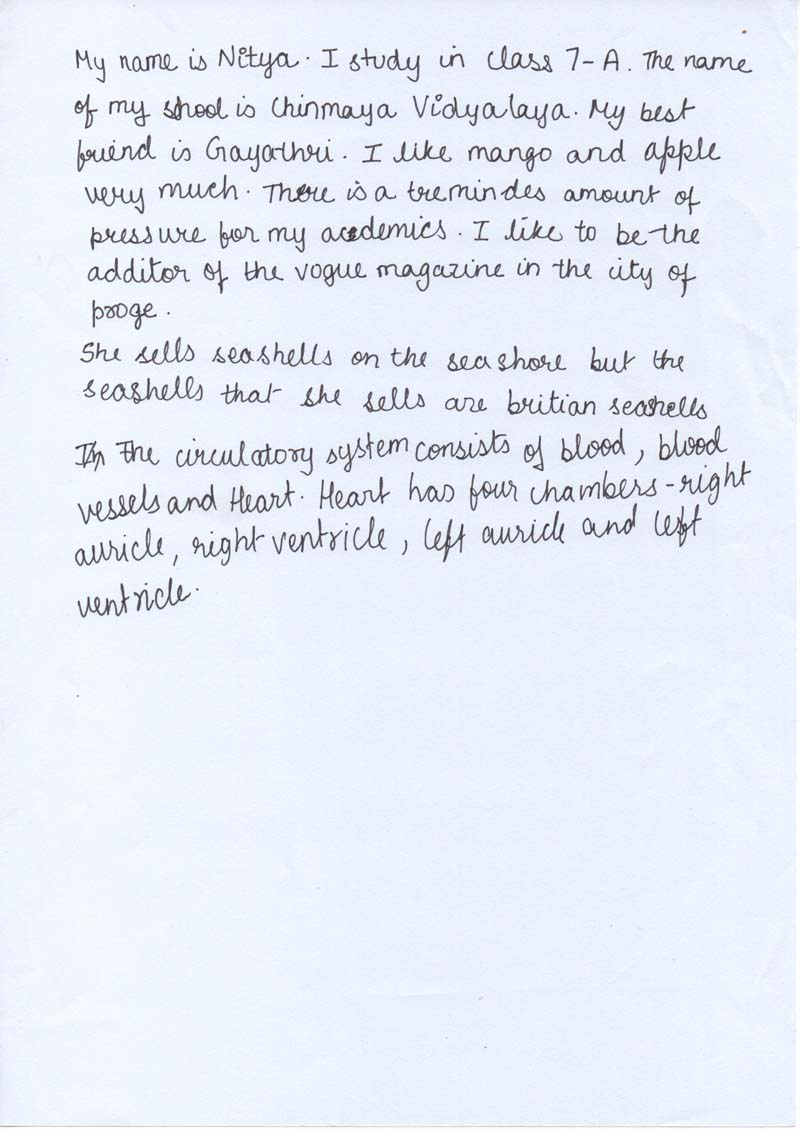 My name is Nitya. I study in class 7-A. The name
of my shool is Chinmaya Vidyalaya. My best
friend is Gayathri. I like mango and apple
very much. There is a tremindes amount of
pressure for my acedemics. I like to be the
additor of the vogue magazine in the city of
proge.
She sells seashells on the seashore but the
seashells that she sells are britian seashells
In The circulatory system consists of blood, blood
vessels and Heart. Heart has four chambers - right
auricle, right ventricle, left auricle and left
ventricle.